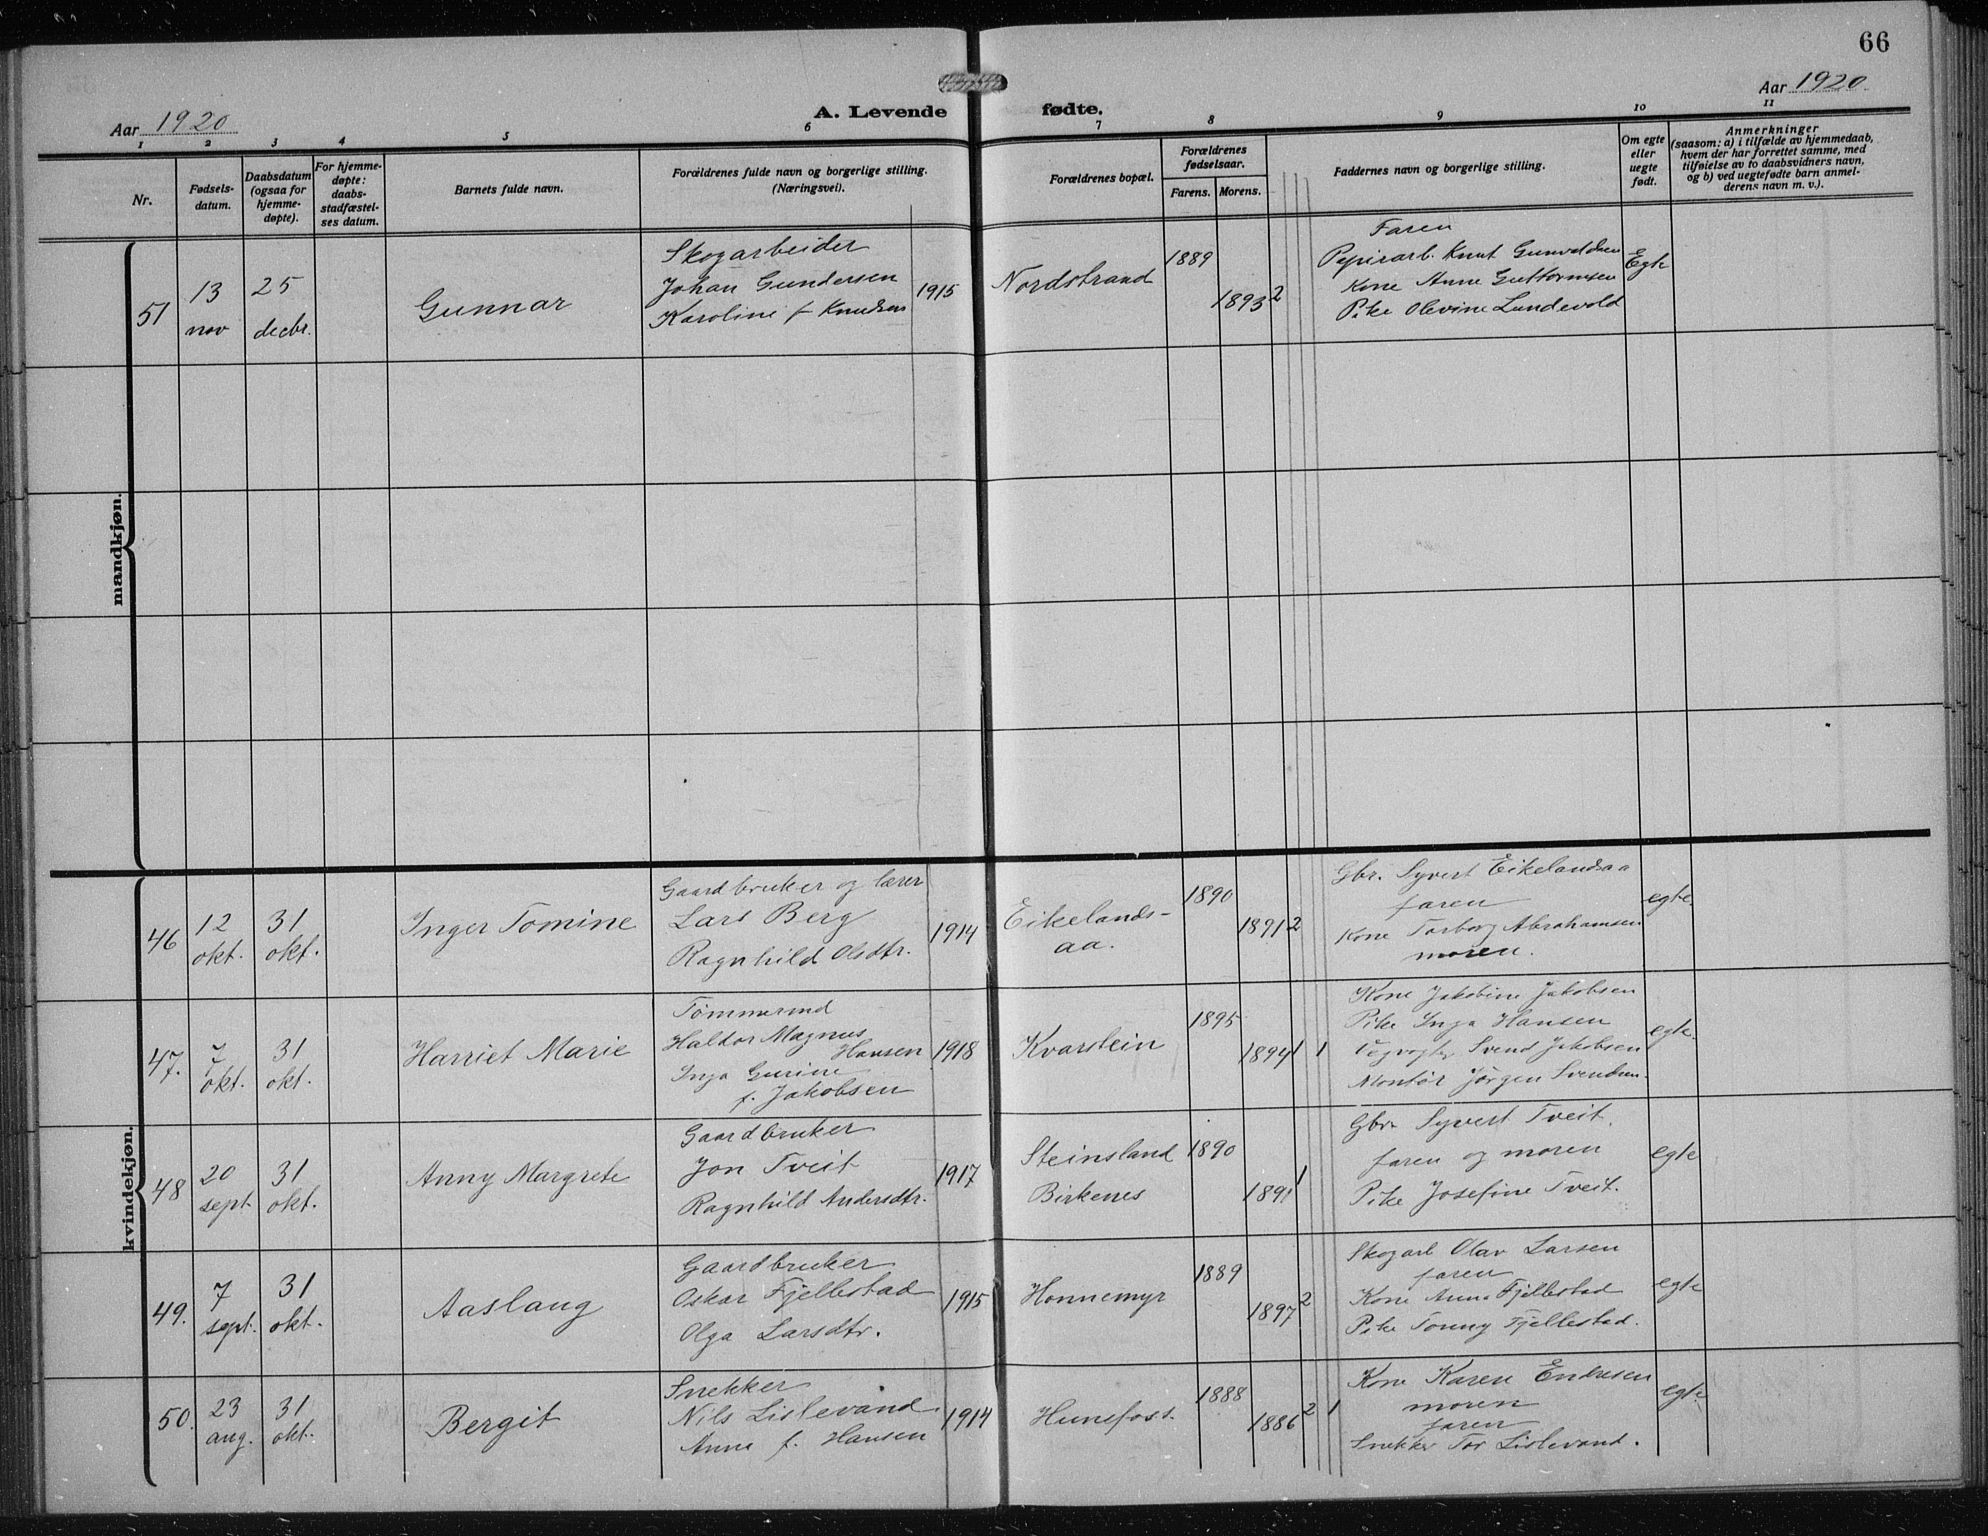 66
Aar 1920
A. Levende fødte.
Aar 1920
1 2 3 4 5 6 7 8 9 10 11
Nr.
Fødsels-
datum.
Daabsdatum
(ogsaa for
hjemme-
døpte).
For hjemme-
døpte:
daabs-
stadfæstel-
ses datum.
Barnets fulde navn.
Forældrenes fulde navn og borgerlige stilling.
(Næringsvei).
Forældrenes bopæl.
Forældrenes
fødselsaar.
Farens. Morens.
Faddernes navn og borgerlige stilling.
Om egte
eller
uegte
født.
Anmerkninger
(saasom: a) i tilfælde av hjemmedaab,
hvem der har forrettet samme, med
tilføielse av to daabsvidners navn,
og b) ved uegtefødte barn anmel-
derens navn m. v.).
mandkjøn.
51
13
nov
25
decbr.
Gunnar
Skogarbeider
Johan Gundersen
Karoline f Knudsen
1915
Nordstrand
1889
1893
2
Faren
Papirarb. Knut Gunvaldsen
Kone Anne Guttormsen
Pike Olevine Lundevold
Egte
kvindekjøn.
46
12
okt.
31
okt.
Inger Tomine
Gaardbruker og lærer
Lars Berg
Ragnhild Olsdtr.
1914
Eikelands-
aa.
1890
1891
2
Gbr. Syvert Eikelandsaa
faren
Kone Torborg Abrahamsen
moren.
egte
47.
7
okt.
31
okt.
Harriet Marie
Tømmermd
Haldor Magnus
Hansen
Inga Gurine
f. Jakobsen
1918
Kvarstein
1895
1894
1 1
Kone Jakobine Jakobsen
Pike Inga Hansen
Vegvogter Svend Jakobsen
Montør Jørgen Svendsen.
egte.
48
20
sept.
31
okt.
Anny Margrete
Gaardbruker
Jon Tveit
Ragnhild Andersdtr.
1917
Steinsland
Birkenes
1890
1891
1
Gbr. Syvert Tveit.
faren og moren
Pike Josefine Tveit.
egte
49.
7
sept.
31
okt.
Aaslaug
Gaardbruker
Oskar Fjellestad
Olga Larsdtr.
1915
Honnemyr
1889
1897
2
Skogarb Olav Larsen
faren
Kone Anna Fjellestad
Pike Tonny Fjellestad.
egte
50.
23
aug.
31
okt.
Bergit
Snekker
Nils Lislevand.
Anne f. Hansen
1914
Hunsfoss.
1888
1886
2 1
Kone Karen Endresen
moren
faren
Snekker Tor Lislevand.
egte.